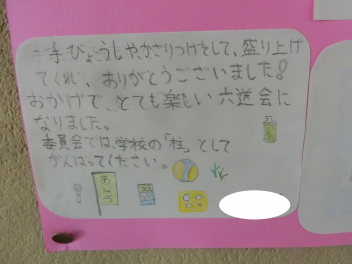 手びょうしやかざりつけをして、盛り上げ
てくれ、ありがとうございました！
おかげで、とても楽しい六送会に
なりました。
委員会では、学校の「柱」として
がんばってください。